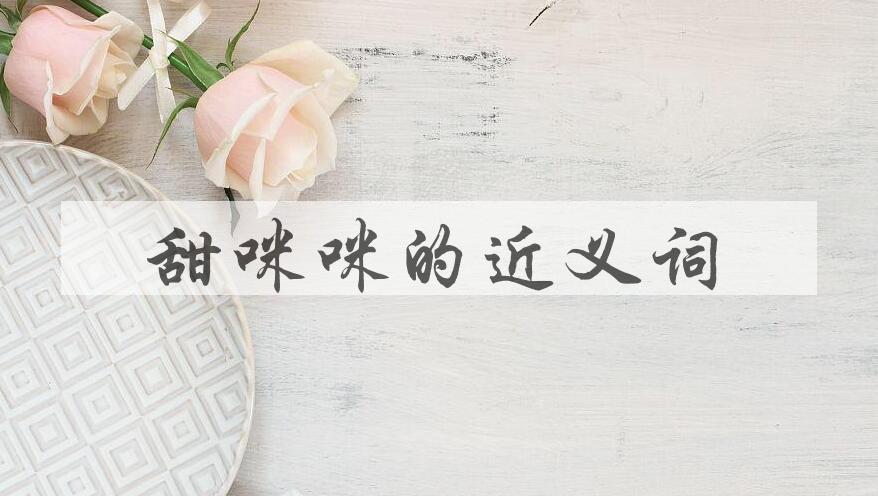 甜咪咪的近义词